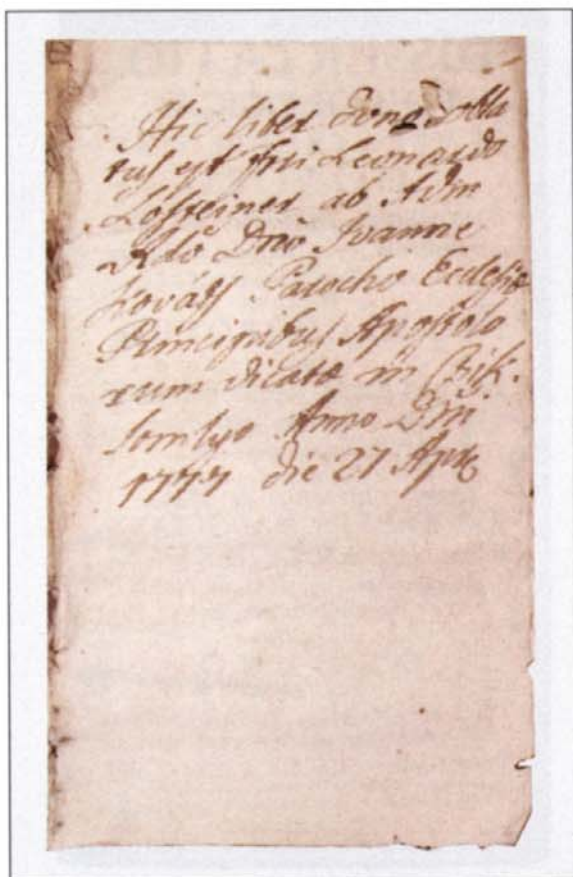 Hic liber dono obla
tus est Fri Leonardo
Losteiner ab Adm
Rdo Dno Joanne
Kováts Parocho Ecclesiæ
Principibus Apostolo
rum dicatæ in Csik.
somlyo Anno Dni
1777 die 27 Apr